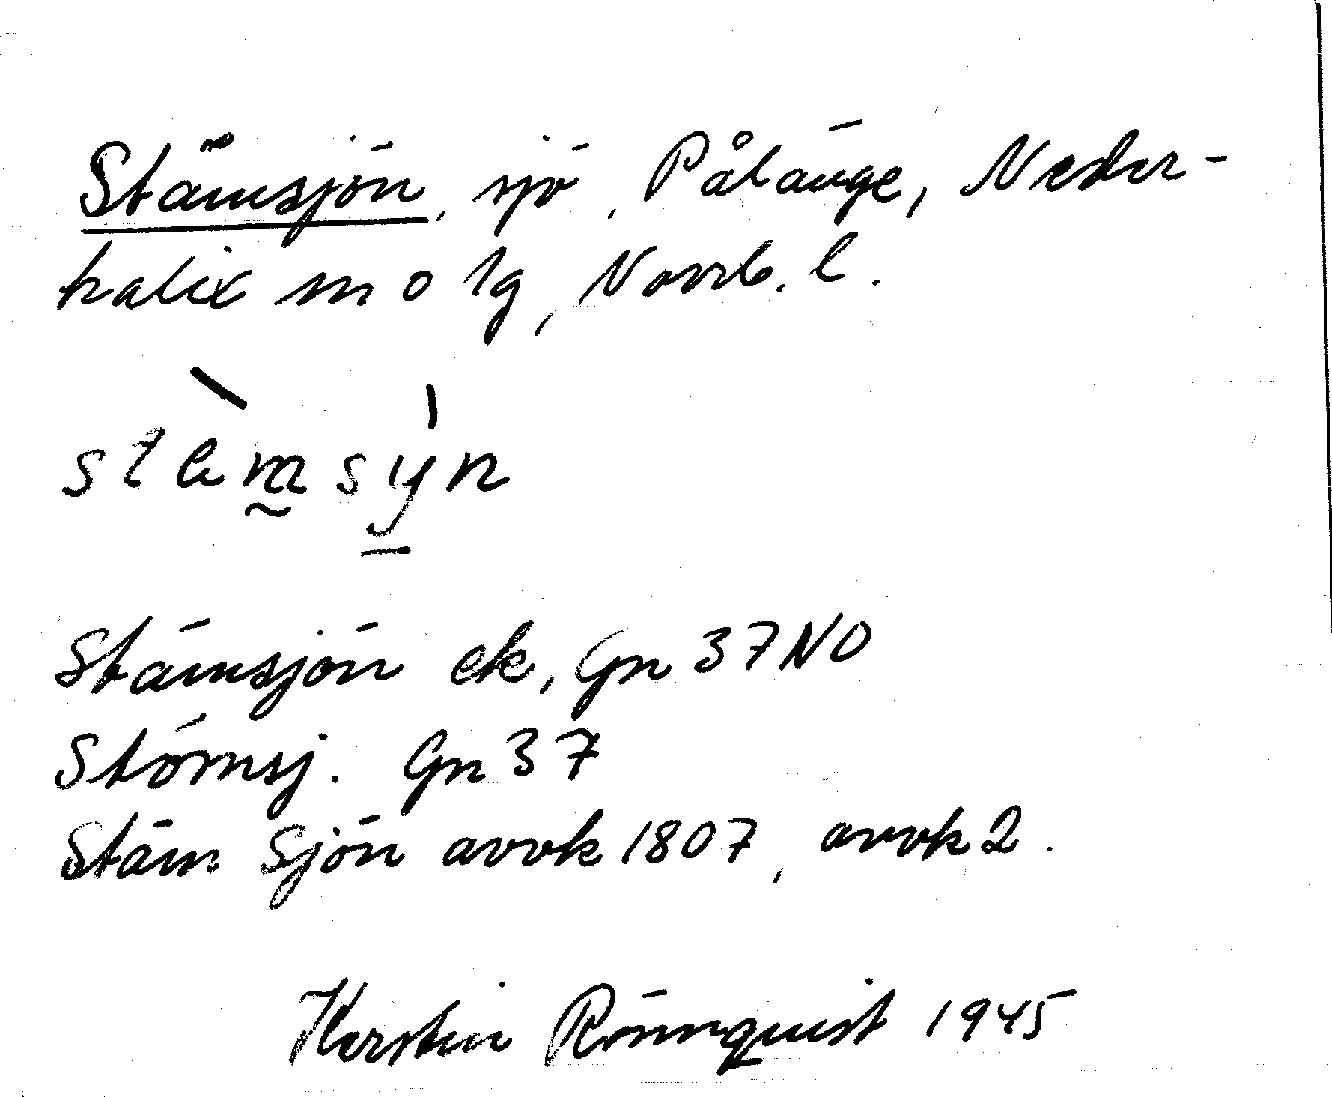 Stämsjön, sjö, Pålänge, Neder-
kalix m o lg, Norrb. l.
Stämsjön ek, Gn 37 NO
Störmsj. Gn 37
Stäm Sjön avvk 1807, avvk 2.
Kerstin Rönnquist 1945